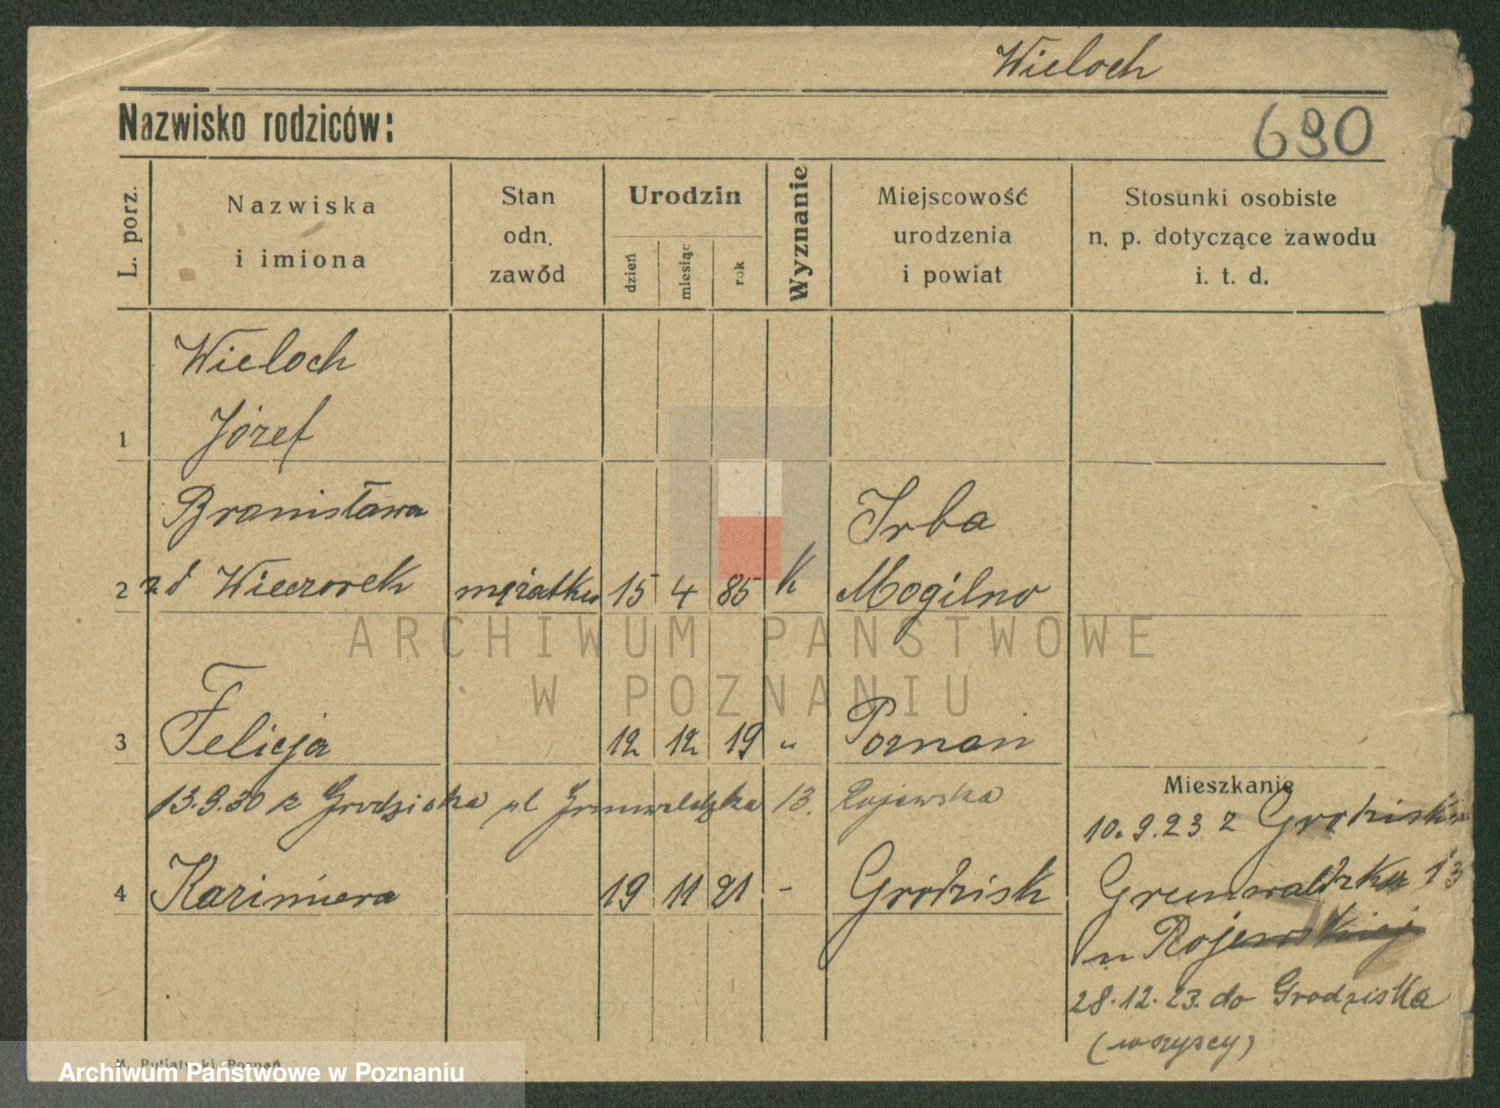 Wieloch
Nazwisko rodziców:
690
L. porz.
Nazwiska
i imiona
Stan
odn.
zawód
Urodzin
dzień
miesiąc
rok
Wyznanie
Miejscowość
urodzenia
i powiat
Stosunki osobiste
n. p. dotyczące zawodu
i. t. d.
Wieloch
1 Józef
Bronisława Irba
2 z d Wieczorek mężatka 15 4 85 k Mogilno
ARCHIWUM PAŃSTWOWE
W POZNANIU
3 Felicja 12 12 19 " Poznań
Mieszkanie
13.9.30 z Grodziska ul Grunwaldzka 13. Rajewska
10.9.23 z Grodziska
4 Kazimiera 19 11 21 - Grodzisk
Grunwaldzka 13
u Rojewskiej
28.12.23. do Grodziska
(wszyscy)
Archiwum Państwowe w Poznaniu